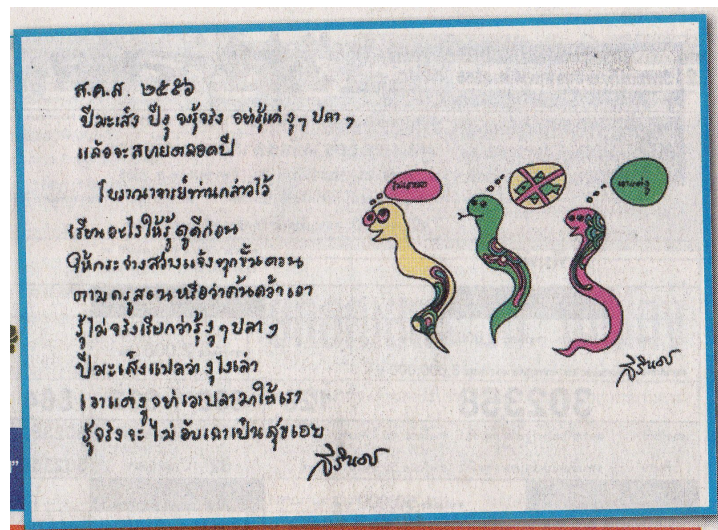 ส.ค.ส. ๒๕๕๖
ปีมะเส็ง ปีงู จงรู้จริง อย่ารู้แต่ งูๆ ปลาๆ
แล้วจะสบายตลอดปี
โบราณาจารย์ท่านกล่าวไว้
เรียนอะไรให้รู้ ดูดีก่อน
ให้กระจ่างสว่างแจ้งทุกขั้นตอน
ตามครูสอนหรือว่าค้นคว้าเอา
รู้ไม่จริงเรียกว่ารู้งูๆปลาๆ
ปีมะเส็งแปลว่า งูไงเล่า
เอาแต่งูอย่าเอาปลามาให้เรา
รู้จริงจะไม่อับเฉาเป็นสุขเอย
สิรินธร
ไม่เอาปลา
เอาแต่งู
สิรินธร
302358